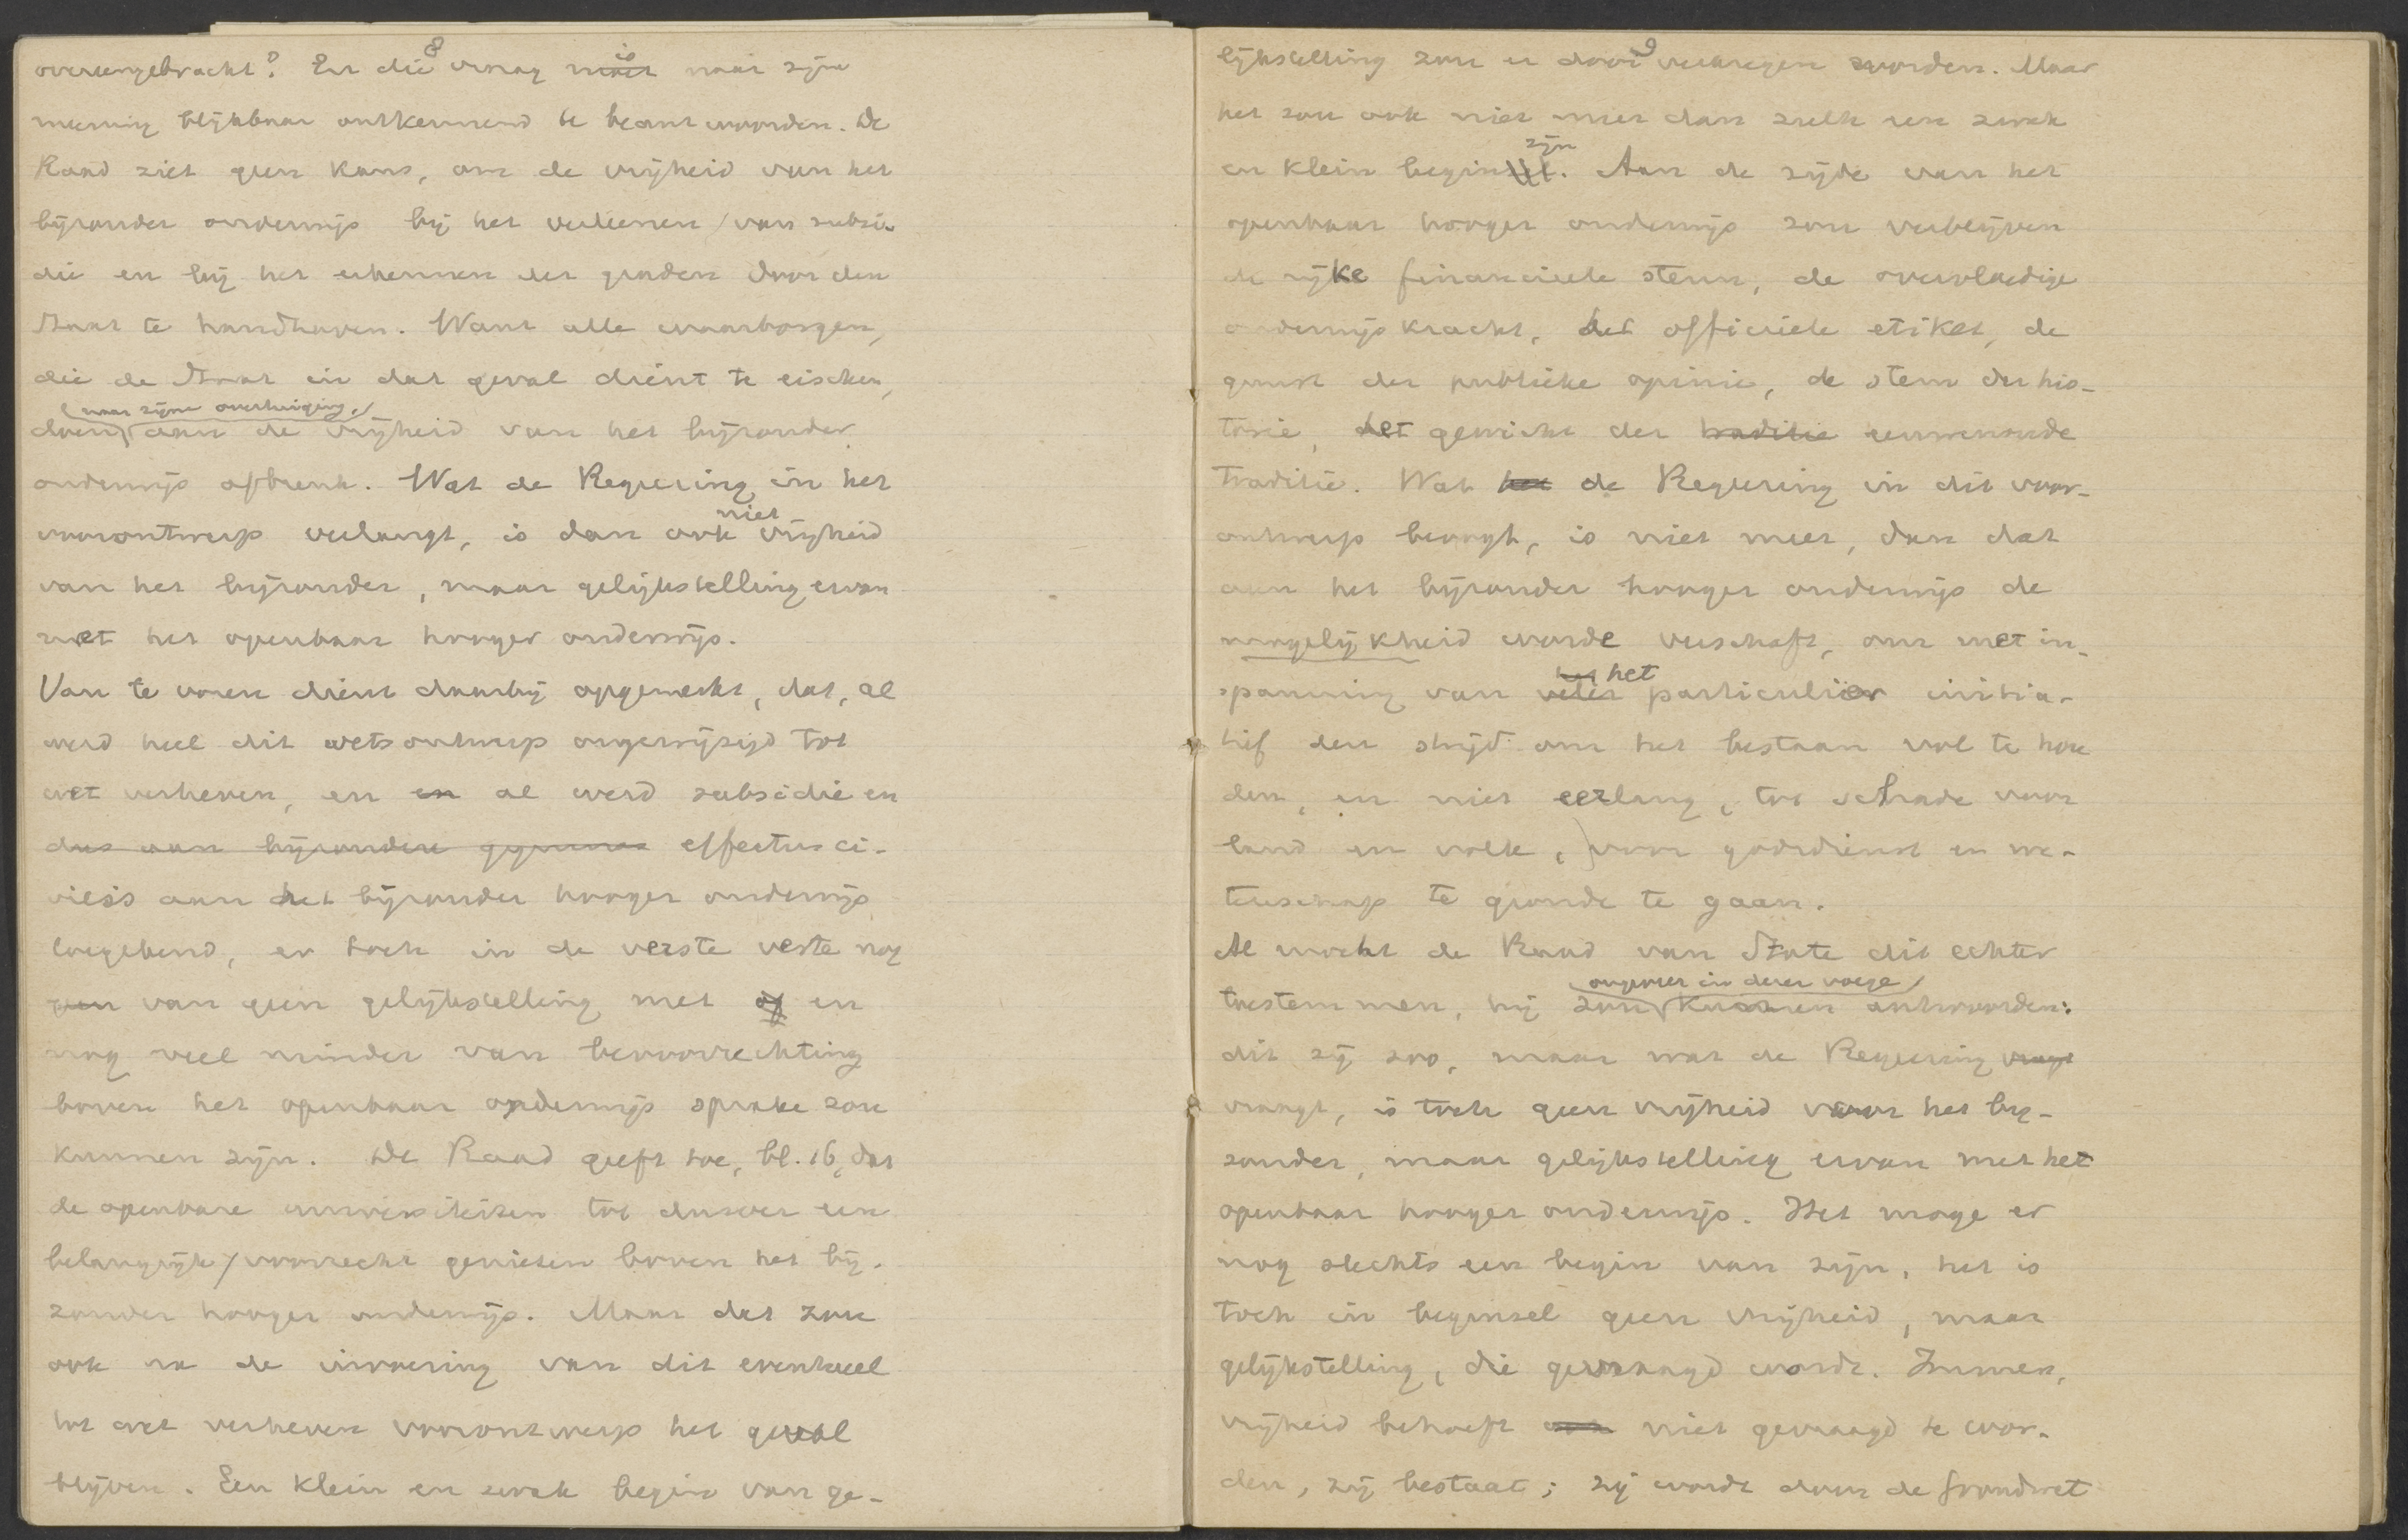 8
overeengebracht? En die vraag is naar zijne
meening blijkbaar ontkennend te beantwoorden. De
Raad ziet geen kans, om de vrijheid van het
bijzonder onderwijs bij het verleenen van subsi-
die en bij het erkennen der graden door den
Staat te handhaven. Want alle waarborgen,
die de Staat in dat geval dient te eischen,
doen, naar zijne overtuiging, aan de vrijheid van het bijzonder
onderwijs afbreuk. Wat de Regeering in het
voorontwerp verlangt, is dan ook niet vrijheid
van het bijzonder, maar gelijkstelling ervan
met het openbaar hooger onderwijs.
Van te voren dient daarbij opgemerkt, dat, al
werd heel dit wetsontwerp ongewijzigd tot
wet verheven, en en al werd subsidie en
dus aan bijzondere gymna effectus ci-
vilis aan het bijzonder hooger onderwijs
toegekend, er toch in de verste verte nog
van geen gelijkstelling met en
nog veel minder van bevoorrechting
boven het openbaar onderwijs sprake zou
kunnen zijn. De Raad geeft toe, bl. 16, dat
de openbare universiteiten tot dusver een
belangrijk voorrecht genieten boven het bij-
zonder hooger onderwijs. Maar dat zou
ook na de invoering van dit eventueel
tot wet verheven voorontwerp het geval
blijven. Een klein en zwak begin van ge-
9
lijkstelling zou er door verkregen worden. Maar
het zou ook niet meer dan zulk een zwak
en klein begin zijn. Aan de zijde van het
openbaar hooger onderwijs zou verblijven
de rijke financieele steun, de overvloedige
onderwijskracht, het officieele etiket, de
gunst der publieke opinie, de stem der his-
torie, het gewicht der traditie eeuwenoude
traditie. Wat de Regeering in dit voor-
ontwerp beoogt, is niet meer, dan dat
aan het bijzonder hooger onderwijs de
mogelijkheid worde verschaft, om met in-
spanning van het particulier initia-
tief den strijd om het bestaan vol te hou
den, en niet eerlang, tot schade voor
land en volk, voor godsdienst en we-
tenschap te gronde te gaan.
Al mocht de Raad van State dit echter
toestemmen, hij zou ongeveer in dezer voege kunnen antwoorden:
dit zij zoo, maar wat de Regeering vraagt
vraagt, is toch geen vrijheid voor het bij-
zonder, maar gelijkstelling ervan met het
openbaar hooger onderwijs. Het moge er
nog slechts een begin van zijn, het is
toch in beginsel geen vrijheid, maar
gelijkstelling, die gevraagd wordt. Immers,
vrijheid behoeft niet gevraagd te wor-
den, zij bestaat; zij wordt door de Grondwet